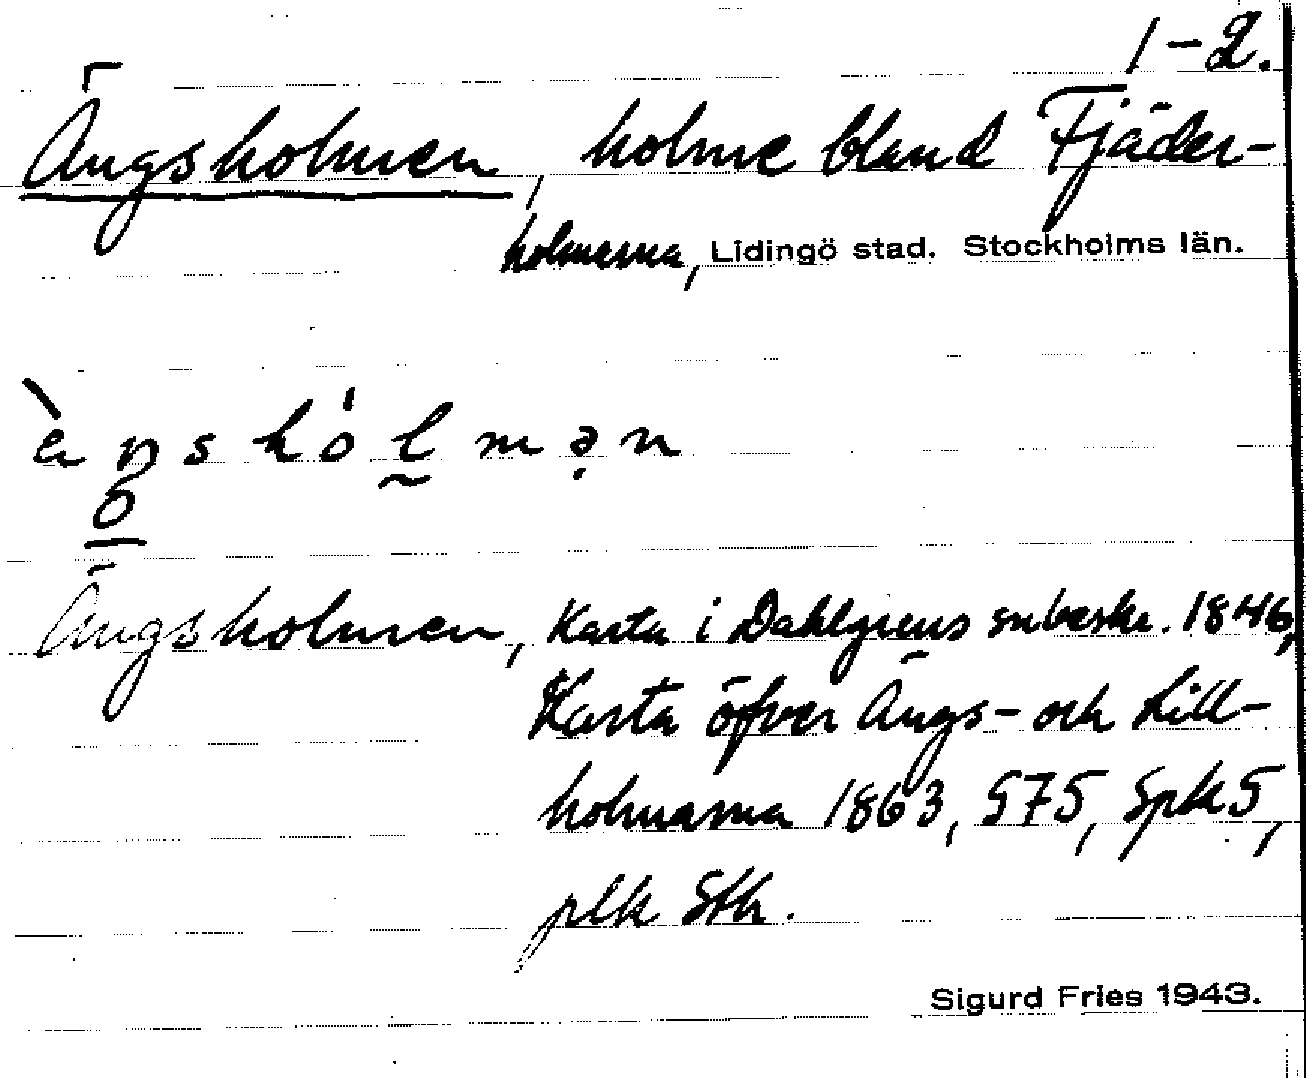 1-2.
Ängsholmen, holme bland Fjäder-
holmarna, Lidingö stad. Stockholms län.
Ängsholmen, Karta i Dahlgrens snbeskr. 1846,
Karta öfver Ängs- och Lill-
holmarna 1863, S75, Spk5,
plk Sth.
Sigurd Fries 1943.